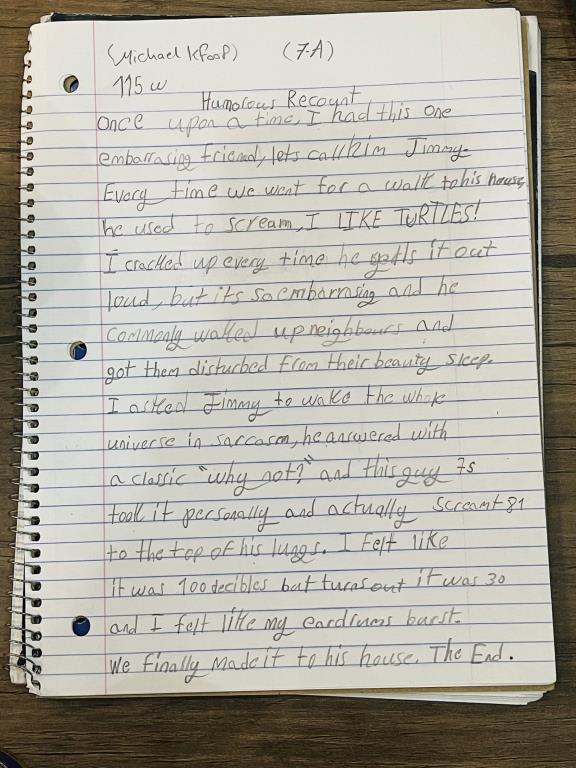 (Michael Kfoof) (7-A)
115 w
Humorous Recount
Once upon a time, I had this one
embarrasing friend, lets call him Jimmy.
Every time we went for a walk to his house,
he used to scream, I LIKE TURTLES!
I cracked up every time he yells it out
loud, but its so embarrasing and he
commonly walked up neighbours and
got them disturbed from their beauty sleep.
I asked Jimmy to wake the whole
universe in sarcasm, he answered with
a classic "why not?" and this guy 75
took it personally and actually screamt 81
to the top of his lungs. I felt like
it was 100 decibles but turns out it was 30
and I felt like my eardrums burst.
We finally made it to his house. The End.